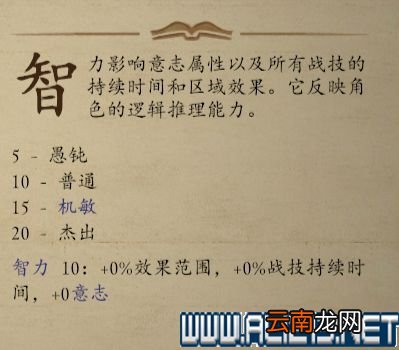 智力影响意志属性以及所有战技的
持续时间和区域效果。它反映角
色的逻辑推理能力。
5 - 愚钝
10 - 普通
15 - 机敏
20 - 杰出
智力 10：+0%效果范围，+0%战技持续时
间，+0意志
云南龙网